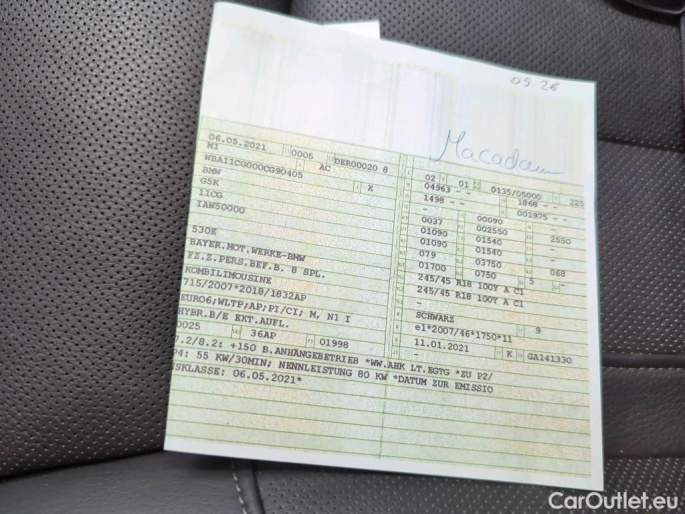 09 26
Macadam
06.05.2021 0005 DER00020 8
M1 AC
WBA11CG000CG90405
BMW X
G5K
11CG
IAW50000
530E
BAYER.MOT.WERKE-BMW
FZ.Z.PERS.BEF.B. 8 SPL.
KOMBILIMOUSINE
715/2007*2018/1832AP
EURO6;WLTP;AP;PI/CI; M, N1 I
HYBR.B/E EXT.AUFL.
0025 36AP 01998
02 01 0135/05000 225
04963 - - 1868 - -
1498 - - 001975 - -
0037 00090 -
01090 002550 2550
01090 01540 -
079 01540 -
01700 03750 068
0750 5 -
245/45 R18 100Y A C1
245/45 R18 100Y A C1
-
-
SCHWARZ 9
e1*2007/46*1750*11
11.01.2021 K GA141330
-
7.2/8.2: +150 B.ANHÄNGEBETRIEB *WW.AHK LT.EGTG *ZU P2/
P4: 55 KW/30MIN; NENNLEISTUNG 80 KW *DATUM ZUR EMISSIO
NSKLASSE: 06.05.2021*
CarOutlet.eu